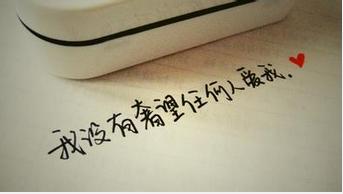 我没有奢望任何人爱我.